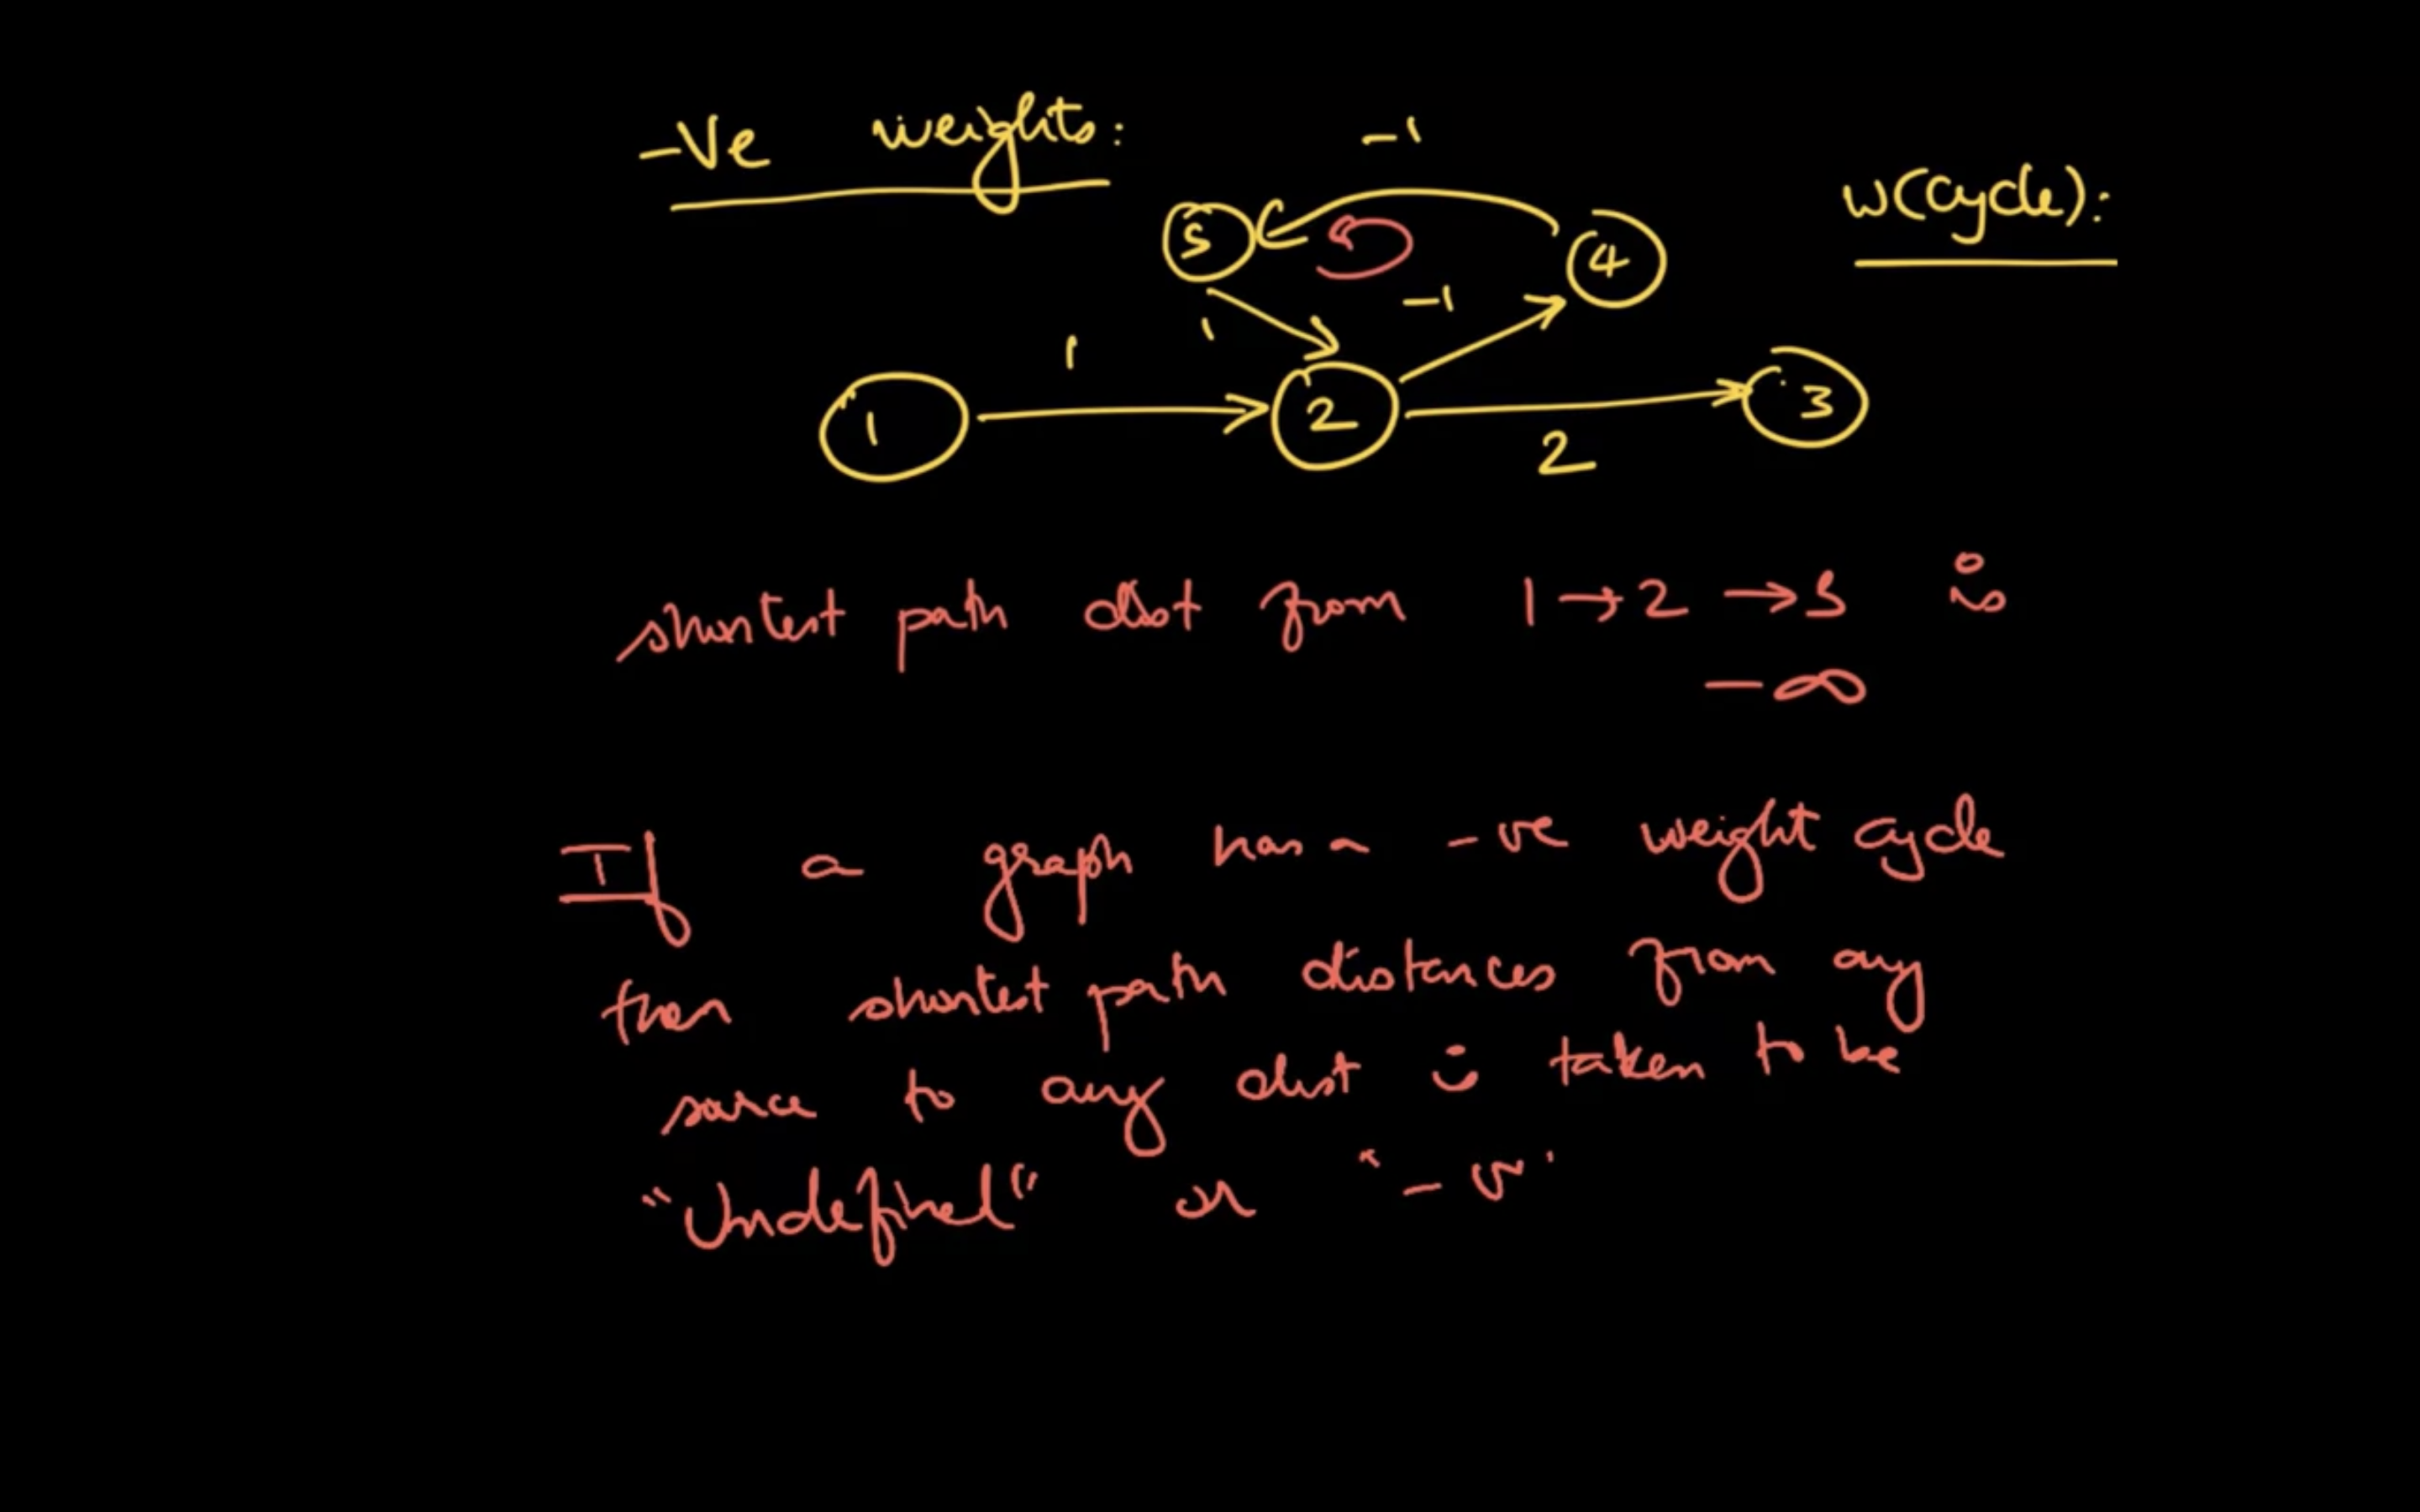 -Ve weights:
-1
w(cycle):
5
4
-1
1
1
1
2
3
2
shortest path dist from 1→2→3 is
-∞
If a graph has a -ve weight cycle
then shortest path distances from any
source to any dist is taken to be
"Undefined" or "-∞"